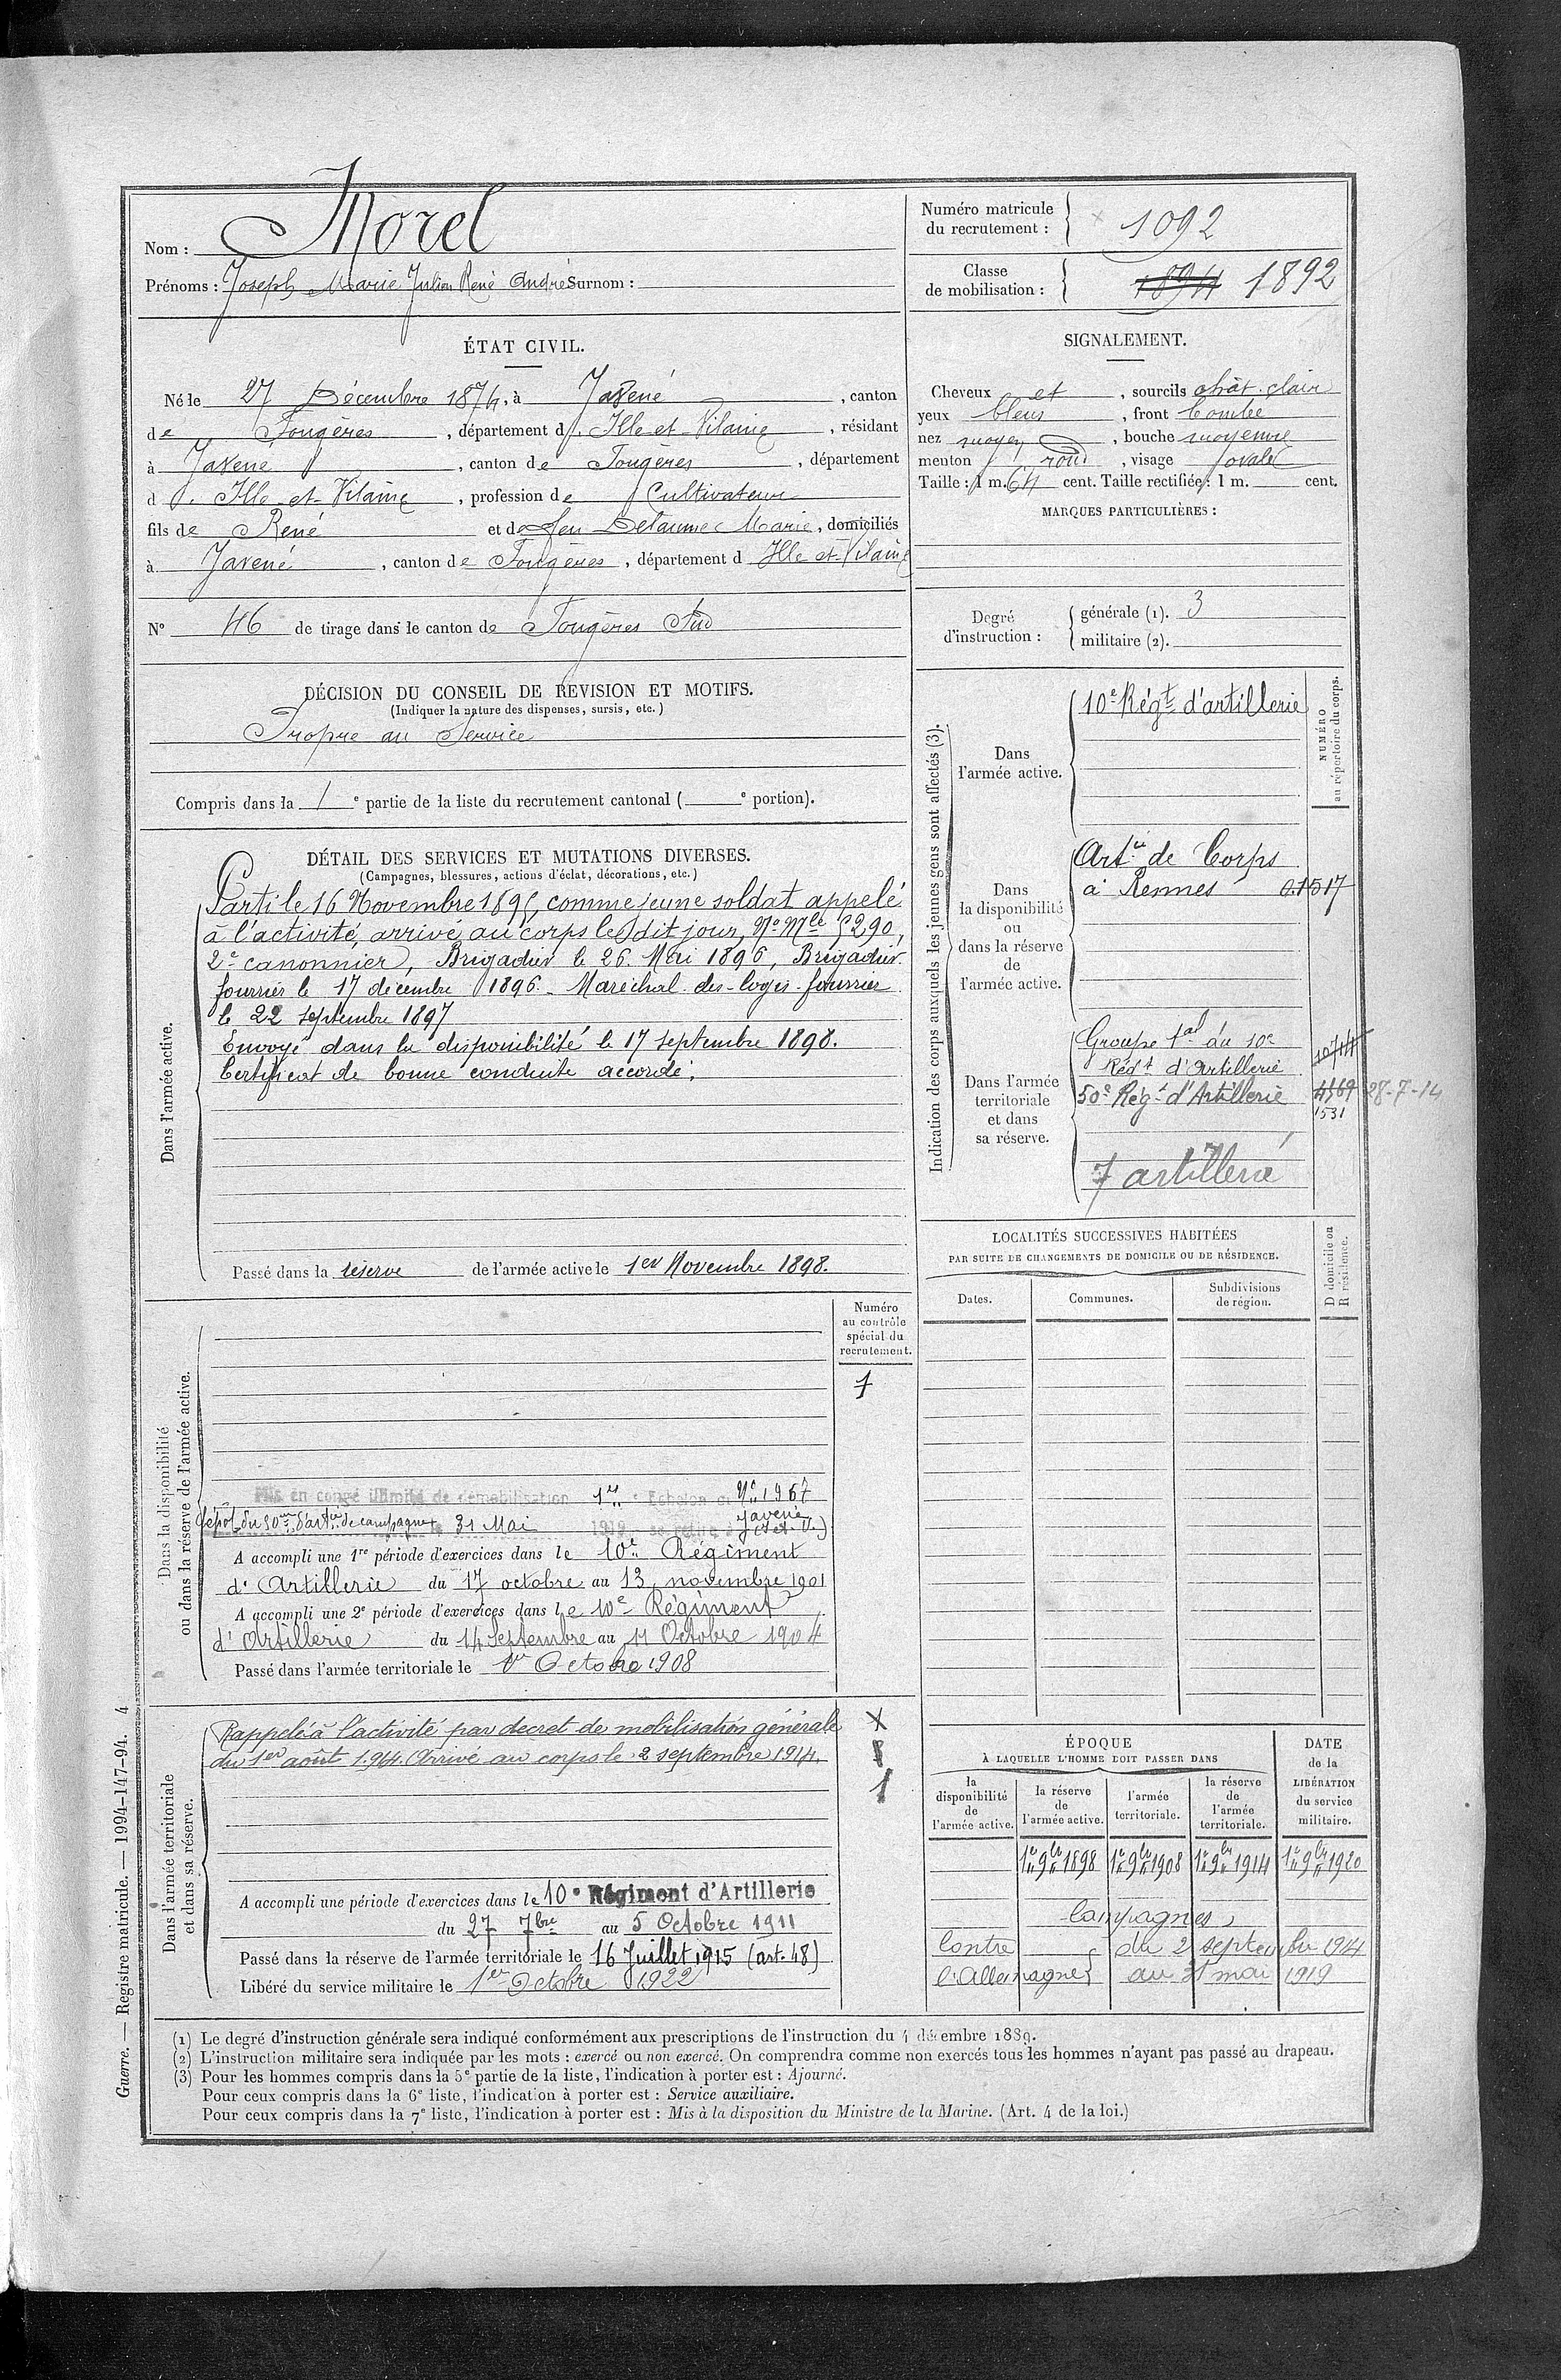 Nom : Morel
Prénoms : Joseph Marie Julien René André Surnom :
Numéro matricule du recrutement : 1092
Classe de mobilisation : 1894 1892
ÉTAT CIVIL.
Né le 27 Décembre 1874, à Javené, canton
de Fougères, département d'Ille-et-Vilaine, résidant
à Javené, canton de Fougères, département
d'Ille-et-Vilaine, profession de Cultivateur
fils de René et de feu Delaunay Marie, domiciliés
à Javené, canton de Fougères, département d Ille et Vilaine
N° 46 de tirage dans le canton de Fougères Sud
SIGNALEMENT.
Cheveux et, sourcils chât. clair
yeux bleus, front bombé
nez moyen, bouche moyenne
menton rond, visage ovale
Taille : 1 m. 64 cent. Taille rectifiée : 1 m. cent.
MARQUES PARTICULIÈRES :
Degré d'instruction : générale (1). 3
militaire (2).
DÉCISION DU CONSEIL DE REVISION ET MOTIFS.
(Indiquer la nature des dispenses, sursis, etc.)
Propre au Service
Compris dans la 1e partie de la liste du recrutement cantonal ( e portion).
DÉTAIL DES SERVICES ET MUTATIONS DIVERSES.
(Campagnes, blessures, actions d'éclat, décorations, etc.)
Dans l'armée active.
Parti le 16 Novembre 1895, comme jeune soldat appelé
à l'activité, arrivé au corps le dit jour, No Mle 5290,
2e canonnier, Brigadier le 26 Mai 1896, Brigadier
fourrier le 17 décembre 1896. Maréchal-des-logis-fourrier
le 22 septembre 1897
Envoyé dans la disponibilité le 17 septembre 1898.
Certificat de bonne conduite accordé.
Passé dans la réserve de l'armée active le 1er Novembre 1898.
Indication des corps auxquels les jeunes gens sont affectés (3).
NUMÉRO au répertoire du corps.
Dans l'armée active.
10e Régt d'artillerie
Dans la disponibilité ou dans la réserve de l'armée active.
Artie de Corps
à Rennes 0.1517
Dans l'armée territoriale et dans sa réserve.
Groupe tal du 10e
Régt d'Artillerie
50e Régt d'Artillerie 4569 28-7-14
1531
7 artillerie
LOCALITÉS SUCCESSIVES HABITÉES
PAR SUITE DE CHANGEMENTS DE DOMICILE OU DE RÉSIDENCE.
Dates. Communes. Subdivisions de région. D domicile ou R résidence.
Dans la disponibilité ou dans la réserve de l'armée active.
Numéro au contrôle spécial du recrutement.
7
Mis en congé illimité de démobilisation 1er Echelon No 1967
dépôt du 50me d'artie de campagne le 31 Mai 1919 se retire à Javené (I. et. V.)
A accompli une 1re période d'exercices dans le 10e Régiment
d'Artillerie du 17 octobre au 13 novembre 1901
A accompli une 2e période d'exercices dans le 10e Régiment
d'Artillerie du 14 Septembre au 11 Octobre 1904
Passé dans l'armée territoriale le 1er Octobre 1908
Dans l'armée territoriale et dans sa réserve.
Rappelé à l'activité par décret de mobilisation générale
du 1er août 1914. Arrivé au corps le 2 septembre 1914.
X
1
A accompli une période d'exercices dans le 10e Régiment d'Artillerie
du 27 7bre au 5 Octobre 1911
Passé dans la réserve de l'armée territoriale le 16 Juillet 1915 (art. 48)
Libéré du service militaire le 1er Octobre 1922
ÉPOQUE
À LAQUELLE L'HOMME DOIT PASSER DANS
la disponibilité de l'armée active. la réserve de l'armée active. l'armée territoriale. la réserve de l'armée territoriale.
DATE de la LIBÉRATION du service militaire.
1er 9bre 1898 1er 9bre 1908 1er 9bre 1914 1er 9bre 1920
Campagnes
Contre du 2 septembre 1914
l'Allemagne au 31 mai 1919
(1) Le degré d'instruction générale sera indiqué conformément aux prescriptions de l'instruction du 4 décembre 1889.
(2) L'instruction militaire sera indiquée par les mots : exercé ou non exercé. On comprendra comme non exercés tous les hommes n'ayant pas passé au drapeau.
(3) Pour les hommes compris dans la 5e partie de la liste, l'indication à porter est : Ajourné.
Pour ceux compris dans la 6e liste, l'indication à porter est : Service auxiliaire.
Pour ceux compris dans la 7e liste, l'indication à porter est : Mis à la disposition du Ministre de la Marine. (Art. 4 de la loi.)
Guerre. — Registre matricule. — 1994-147-94. 4